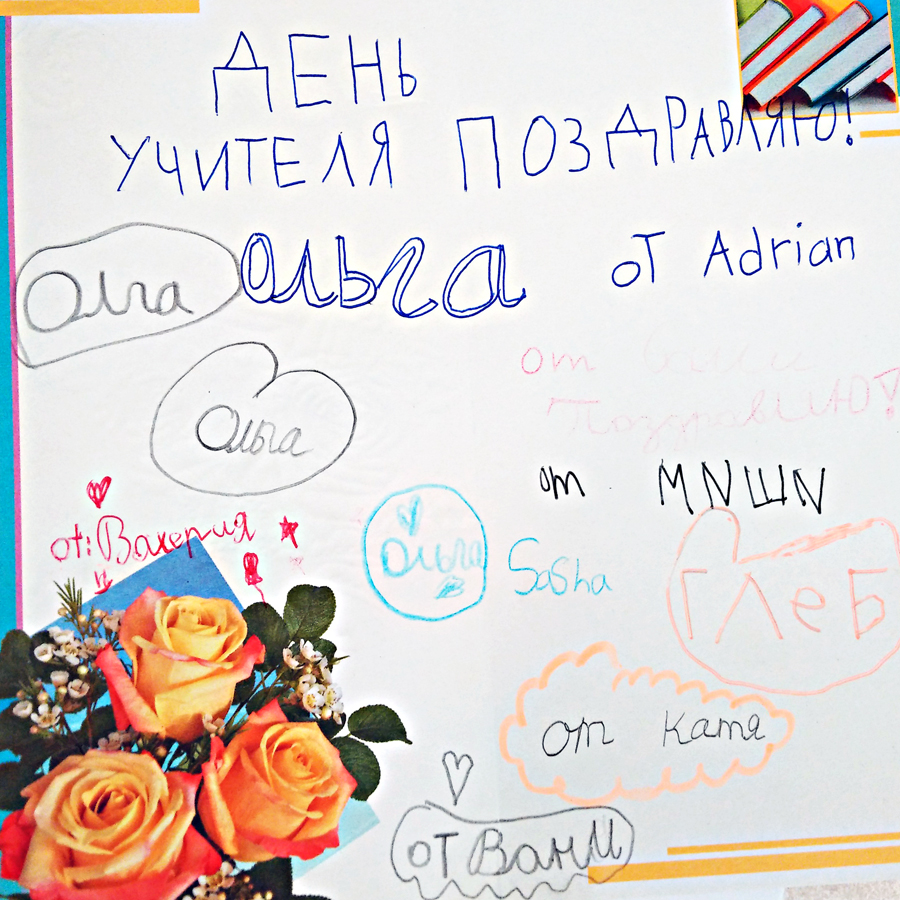 ДЕНЬ
УЧИТЕЛЯ ПОЗДРАВЛЯЮ!
Олга Ольга от Adrian
от
Поздравлию!
Ольга
от МNШN
от: Валерия
Ольга Sasha
ГЛеБ
от Катя
от Вани